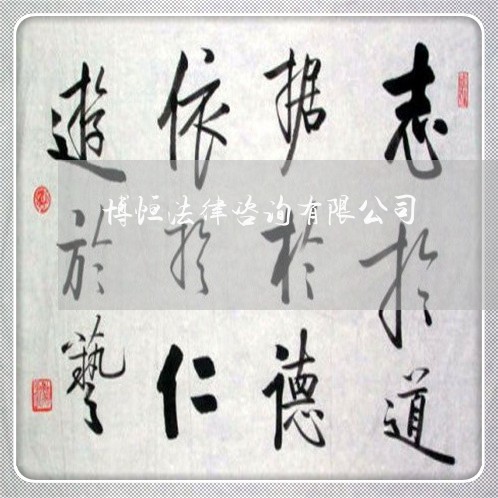 志於道
据於德
依於仁
遊於藝
博恒法律咨询有限公司